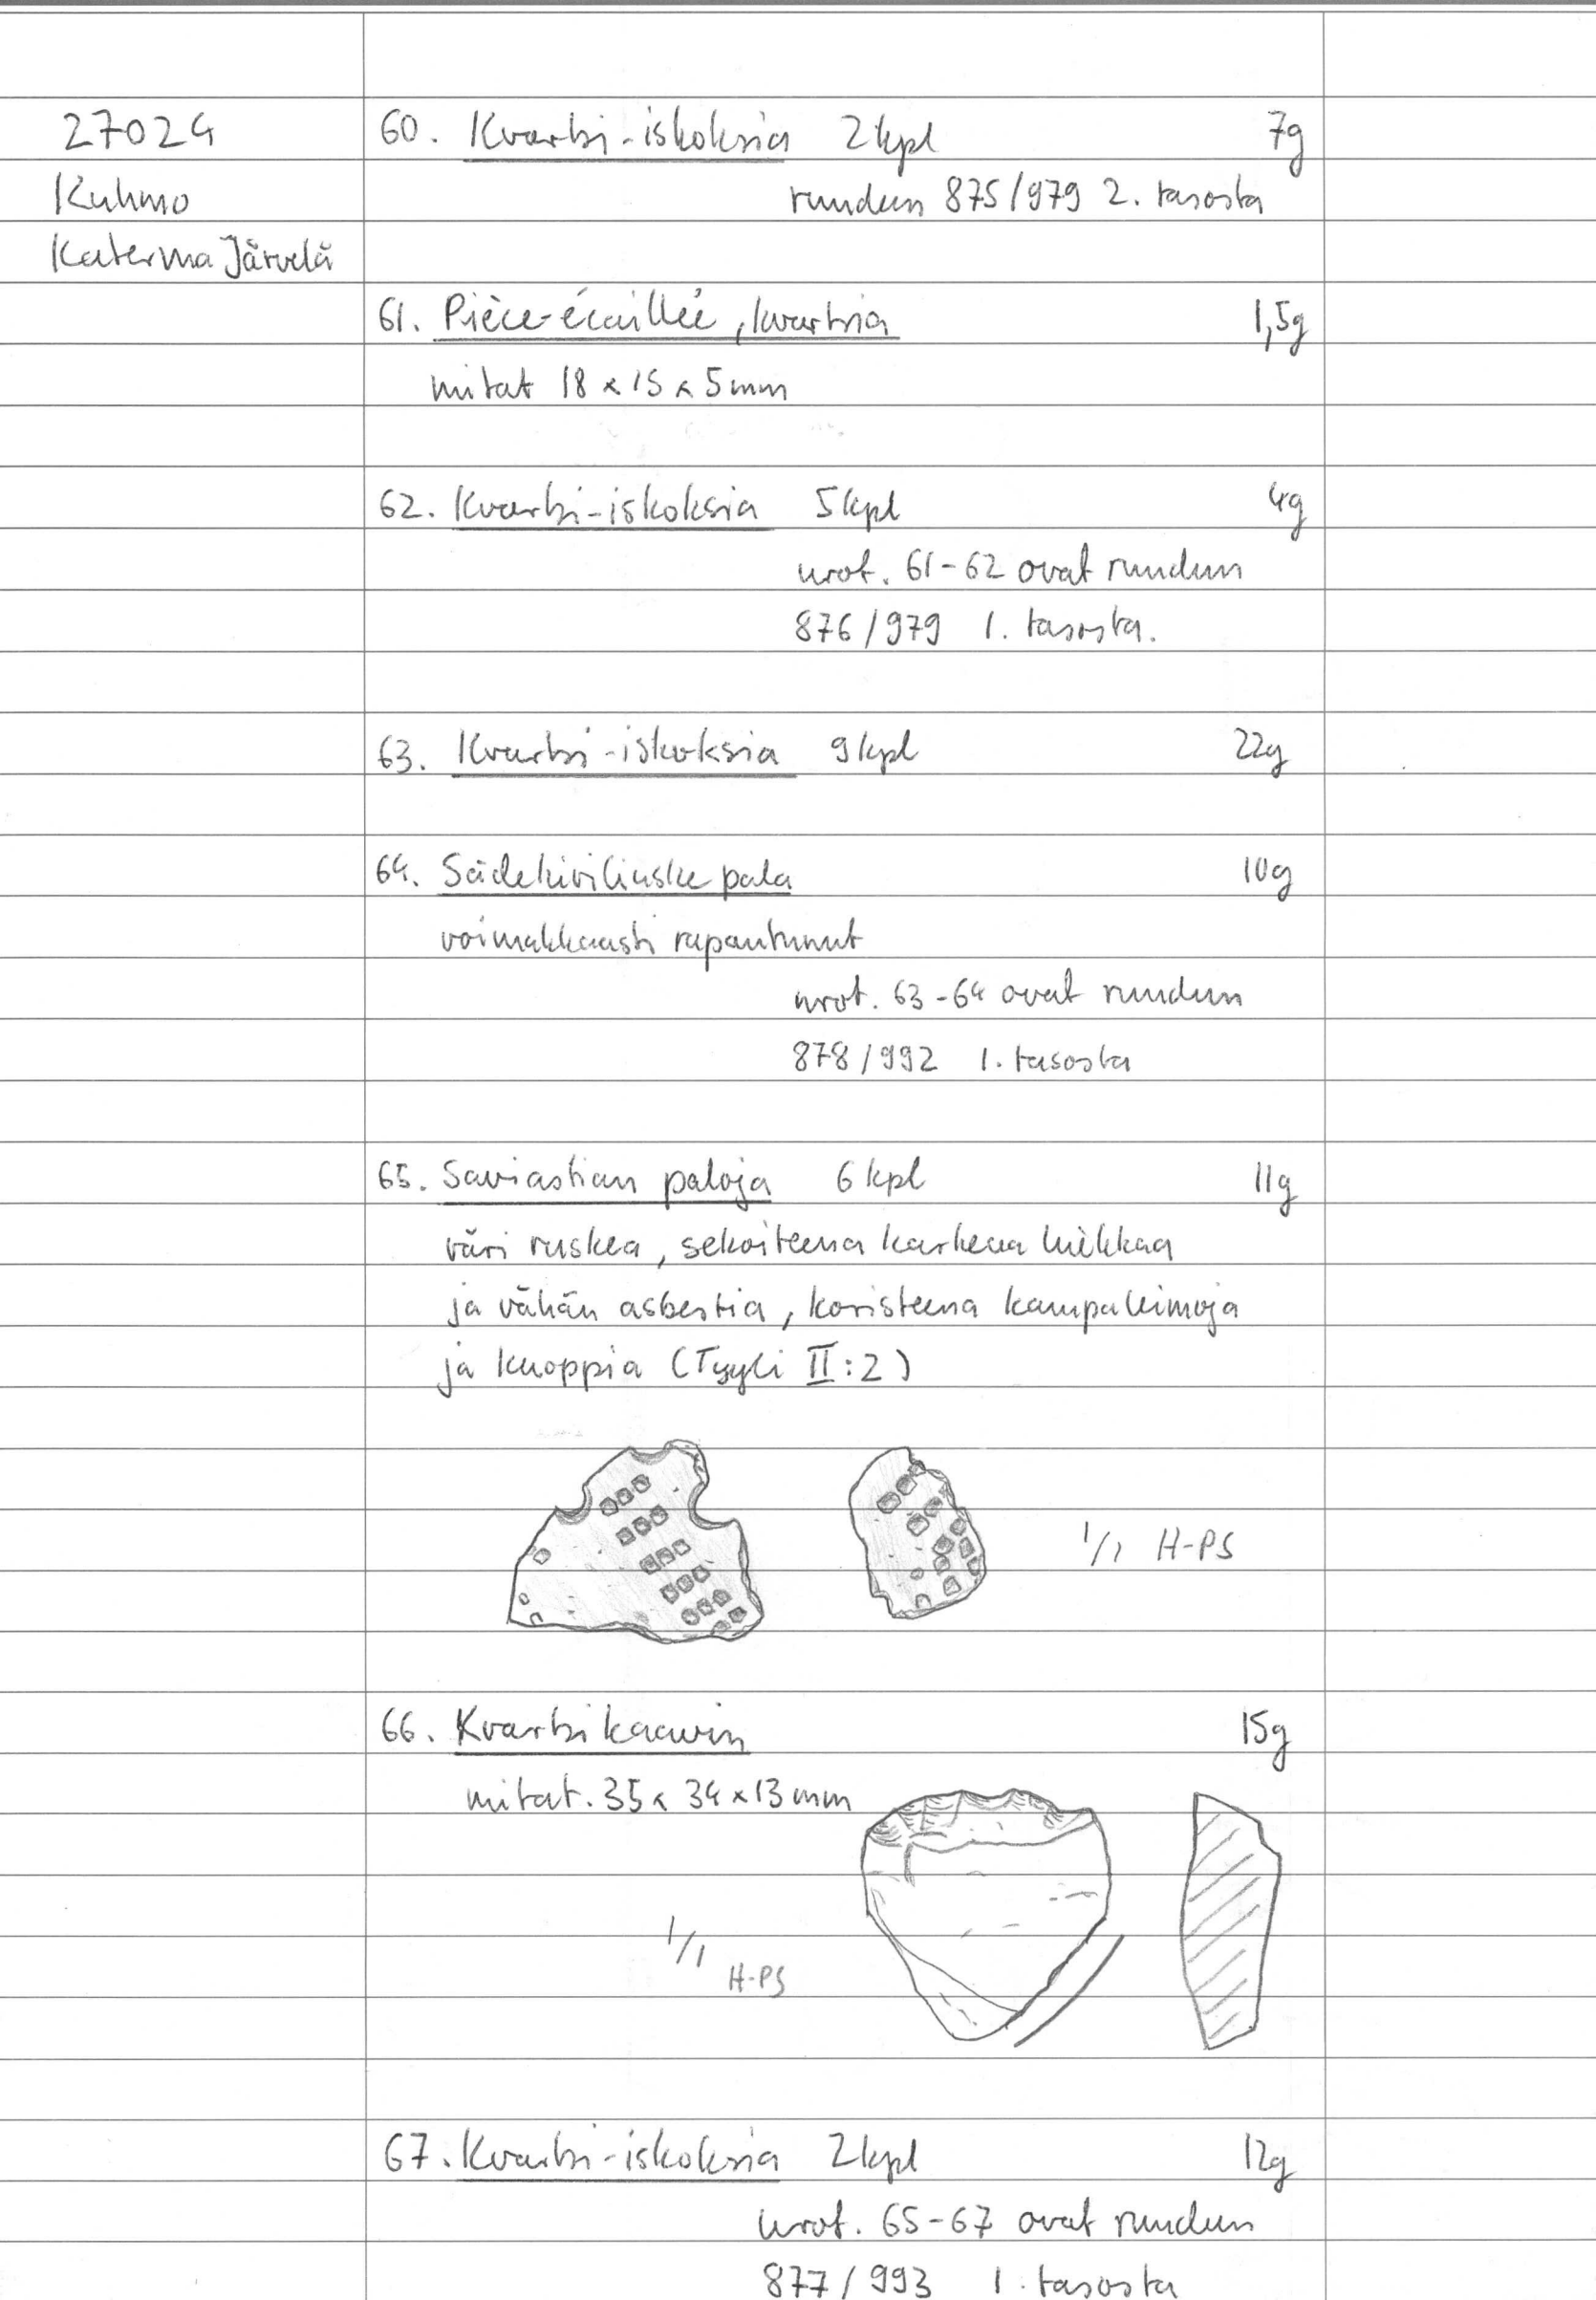 27024
Kuhmo
Katerma Järvelä
60. Kvartsi-iskoksia 2 kpl 7g
ruudun 875/979 2. tasosta
61. Pièce-écaillée, kvartsia 1,5g
mitat 18 x 15 x 5 mm
62. Kvartsi-iskoksia 5 kpl 4g
nrot. 61-62 ovat ruudun
876/979 1. tasosta.
63. Kvartsi-iskoksia 9 kpl 22g
64. Sädekiviliuske pala 10g
voimakkaasti rapautunut
nrot. 63-64 ovat ruudun
878/992 1. tasosta
65. Saviastian paloja 6 kpl 11g
väri ruskea, sekoiteena karkeaa hiekkaa
ja vähän asbestia, koristeena kampaleimoja
ja kuoppia (Tyyli II:2)
1/1 H-PS
66. Kvartsikaavin 15g
mitat. 35 x 34 x 13 mm
1/1 H-PS
67. Kvartsi-iskoksia 2 kpl 12g
nrot. 65-67 ovat ruudun
877/993 1. tasosta